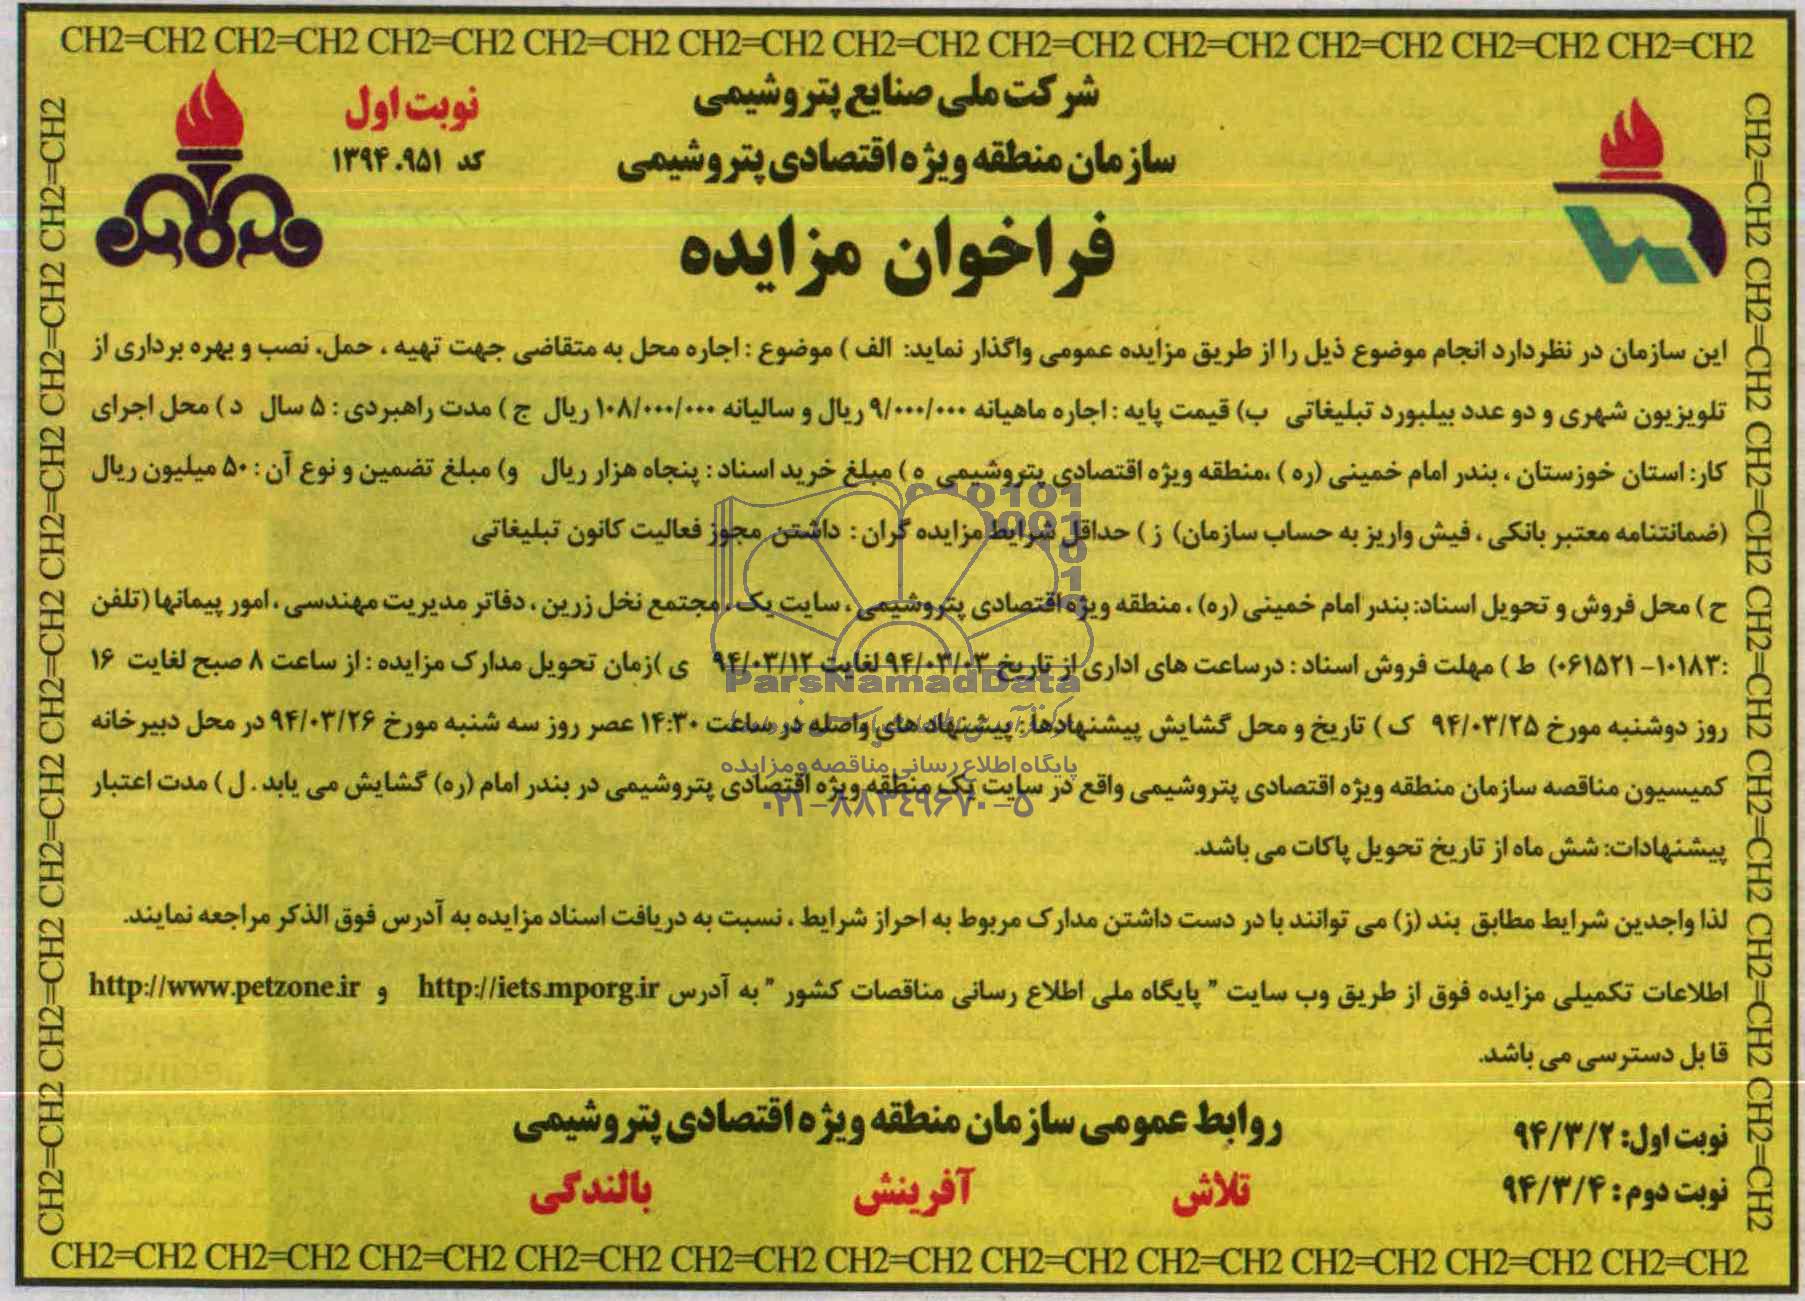 CH2=CH2 CH2=CH2 CH2=CH2 CH2=CH2 CH2=CH2 CH2=CH2 CH2=CH2 CH2=CH2 CH2=CH2 CH2=CH2 CH2=CH2
شرکت ملی صنایع پتروشیمی
نوبت اول
سازمان منطقه ویژه اقتصادی پتروشیمی
کد ۱۳۹۴.۹۵۱
فراخوان مزایده
این سازمان در نظردارد انجام موضوع ذیل را از طریق مزایده عمومی واگذار نماید: الف ) موضوع : اجاره محل به متقاضی جهت تهیه ، حمل، نصب و بهره برداری از
تلویزیون شهری و دو عدد بیلبورد تبلیغاتی ب) قیمت پایه : اجاره ماهیانه ۹/۰۰۰/۰۰۰ ریال و سالیانه ۱۰۸/۰۰۰/۰۰۰ ریال ج ) مدت راهبردی : ۵ سال د ) محل اجرای
کار: استان خوزستان ، بندر امام خمینی (ره ) ،منطقه ویژه اقتصادی پتروشیمی ه ) مبلغ خرید اسناد : پنجاه هزار ریال و) مبلغ تضمین و نوع آن : ۵۰ میلیون ریال
(ضمانتنامه معتبر بانکی ، فیش واریز به حساب سازمان) ز ) حداقل شرایط مزایده گران : داشتن مجوز فعالیت کانون تبلیغاتی
ح ) محل فروش و تحویل اسناد: بندر امام خمینی (ره) ، منطقه ویژه اقتصادی پتروشیمی ، سایت یک ، مجتمع نخل زرین ، دفاتر مدیریت مهندسی ، امور پیمانها (تلفن
:۱۰۱۸۳-۰۶۱۵۲۱) ط ) مهلت فروش اسناد : درساعت های اداری از تاریخ ۹۴/۰۳/۰۳ لغایت ۹۴/۰۳/۱۲ ی )زمان تحویل مدارک مزایده : از ساعت ۸ صبح لغایت ۱۶
روز دوشنبه مورخ ۹۴/۰۳/۲۵ ک ) تاریخ و محل گشایش پیشنهادها: پیشنهادهای واصله در ساعت ۱۴:۳۰ عصر روز سه شنبه مورخ ۹۴/۰۳/۲۶ در محل دبیرخانه
کمیسیون مناقصه سازمان منطقه ویژه اقتصادی پتروشیمی واقع در سایت یک منطقه ویژه اقتصادی پتروشیمی در بندر امام (ره) گشایش می یابد . ل ) مدت اعتبار
پیشنهادات: شش ماه از تاریخ تحویل پاکات می باشد.
لذا واجدین شرایط مطابق بند (ز) می توانند با در دست داشتن مدارک مربوط به احراز شرایط ، نسبت به دریافت اسناد مزایده به آدرس فوق الذکر مراجعه نمایند.
اطلاعات تکمیلی مزایده فوق از طریق وب سایت " پایگاه ملی اطلاع رسانی مناقصات کشور " به آدرس http://iets.mporg.ir و http://www.petzone.ir
قابل دسترسی می باشد.
روابط عمومی سازمان منطقه ویژه اقتصادی پتروشیمی
نوبت اول: ۹۴/۳/۲
تلاش آفرینش بالندگی
نوبت دوم: ۹۴/۳/۴
CH2=CH2 CH2=CH2 CH2=CH2 CH2=CH2 CH2=CH2 CH2=CH2 CH2=CH2 CH2=CH2 CH2=CH2 CH2=CH2 CH2=CH2
CH2=CH2 CH2=CH2 CH2=CH2 CH2=CH2 CH2=CH2 CH2=CH2 CH2=CH2
CH2=CH2 CH2=CH2 CH2=CH2 CH2=CH2 CH2=CH2 CH2=CH2 CH2=CH2
ParsNamadData
پایگاه اطلاع رسانی مناقصه و مزایده
۰۲۱-۸۸۳۴۹۶۷۰-۵